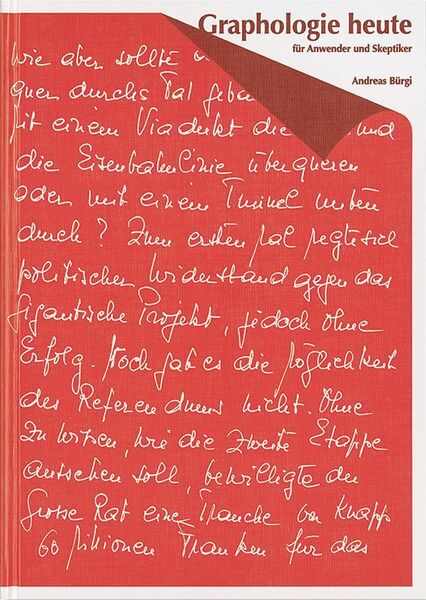 Graphologie heute
für Anwender und Skeptiker
Andreas Bürgi
wie aber sollte
quer durchs Tal geba
Mit einem Viadukt die und
die Eisenbahnlinie überqueren
oder mit einem Tunnel unten
durch? Zum ersten Mal regte sich
politischer Widerstand gegen das
gigantische Projekt, jedoch ohne
Erfolg. Noch gab es die Möglichkeit
des Referendums nicht. Ohne
zu wissen, wie die zweite Etappe
aussehen soll, bewilligte der
Grosse Rat eine Tranche von knapp
60 Millionen Franken für das